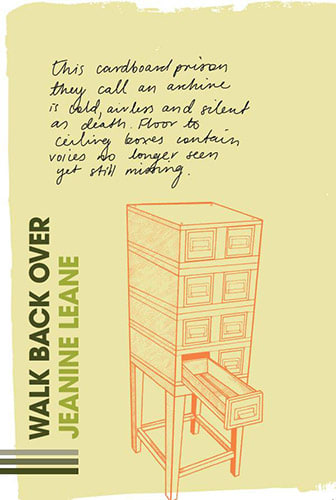 this cardboard prison
they call an archive
is cold, airless and silent
as death. Floor to
ceiling boxes contain
voices no longer seen
yet still missing.
WALK BACK OVER
JEANINE LEANE